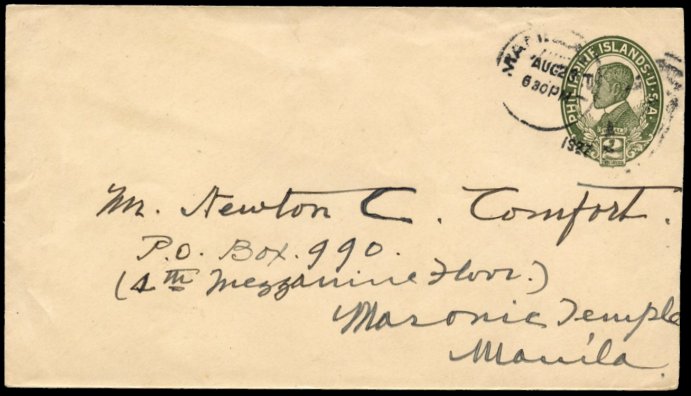 PHILIPPINE ISLANDS·U·S·A·
AUG 2
6 30 PM
1922
2
Mr. Newton C. Comfort.
P.O. Box. 990.
(4th Mezzanine Floor.)
Masonic Temple
Manila.